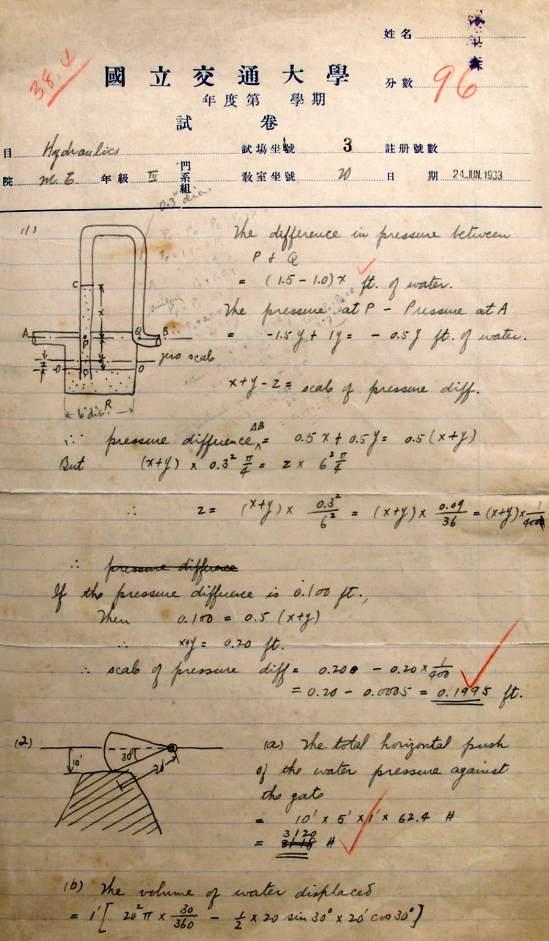 姓名
38.4
國立交通大學
分數 96
年度第 學期
試卷
目 Hydraulics 試場坐號 3 註册號數
院 M.E. 年級 IV 門系組 教室坐號 20 日期 24 JUN. 1933
0.3" dia.
(1)
The difference in pressure between
P & Q
= (1.5 - 1.0) x ft. of water.
The pressure at P - Pressure at A
= -1.5 y + 1 y = - 0.5 y ft. of water.
x + y - z = scale of pressure diff.
C
x
A
P
Q
B
y
zero scale
z
O
O
6" dia.
R
∴ pressure difference AB = 0.5 x + 0.5 y = 0.5 (x+y)
But (x+y) × 0.3² π/4 = z × 6² π/4
∴ z = (x+y) × 0.3²/6² = (x+y) × 0.09/36 = (x+y) × 1/400
∴ pressure difference
If the pressure difference is 0.100 ft.,
Then 0.100 = 0.5 (x+y)
∴ x+y = 0.20 ft.
∴ scale of pressure diff = 0.200 - 0.20 × 1/400
= 0.20 - 0.0005 = 0.1995 ft.
(2)
10'
30°
20'
(a) The total horizontal push
of the water pressure against
the gate
= 10' × 5' × 1' × 62.4 #
= 3120 #
(b) The volume of water displaced
= 1' [ 20² π × 30/360 - 1/2 × 20 sin 30° × 20' cos 30° ]